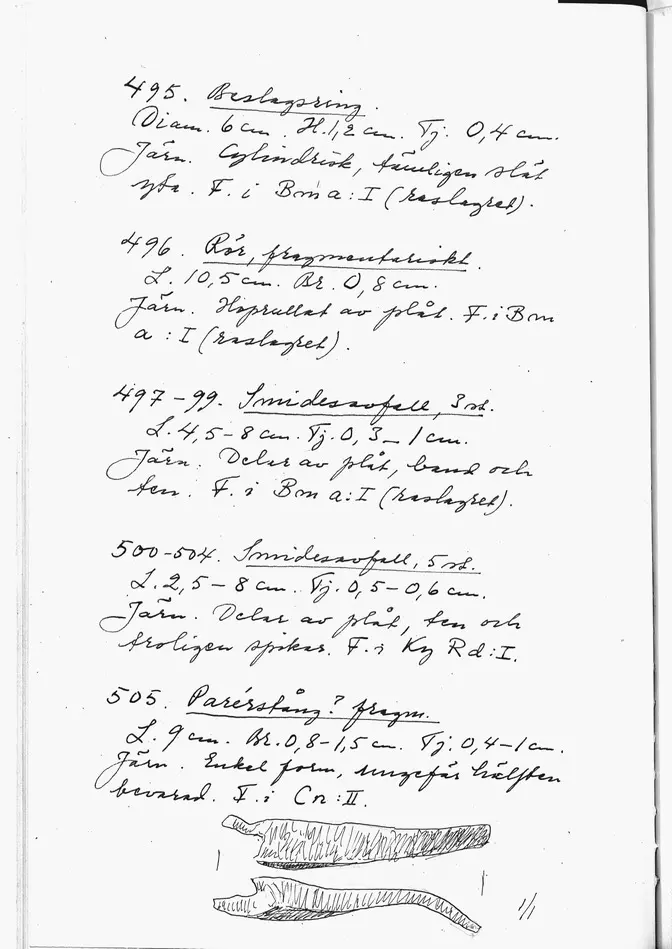 495. Beslagsring.
Diam. 6 cm. H. 1,2 cm. Tj. 0,4 cm.
Järn. Cylindrisk, tämligen slät
yta. F. i Bm a:I (raslagret).
496. Rör, fragmentariskt.
L. 10,5 cm. Br. 0,8 cm.
Järn. Hoprullat av plåt. F. i Bm
a:I (raslagret).
497-99. Smidesavfall, 3 st.
L. 4,5-8 cm. Tj. 0,3-1 cm.
Järn. Delar av plåt, band och
ten. F. i Bm a:I (raslagret).
500-504. Smidesavfall, 5 st.
L. 2,5-8 cm. Tj. 0,5-0,6 cm.
Järn. Delar av plåt, ten och
troligen spikar. F. i Ky Rd:I.
505. Parérstång? fragm.
L. 9 cm. Br. 0,8-1,5 cm. Tj. 0,4-1 cm.
Järn. Enkel form, ungefär hälften
bevarad. F. i Cn:II.
1/1